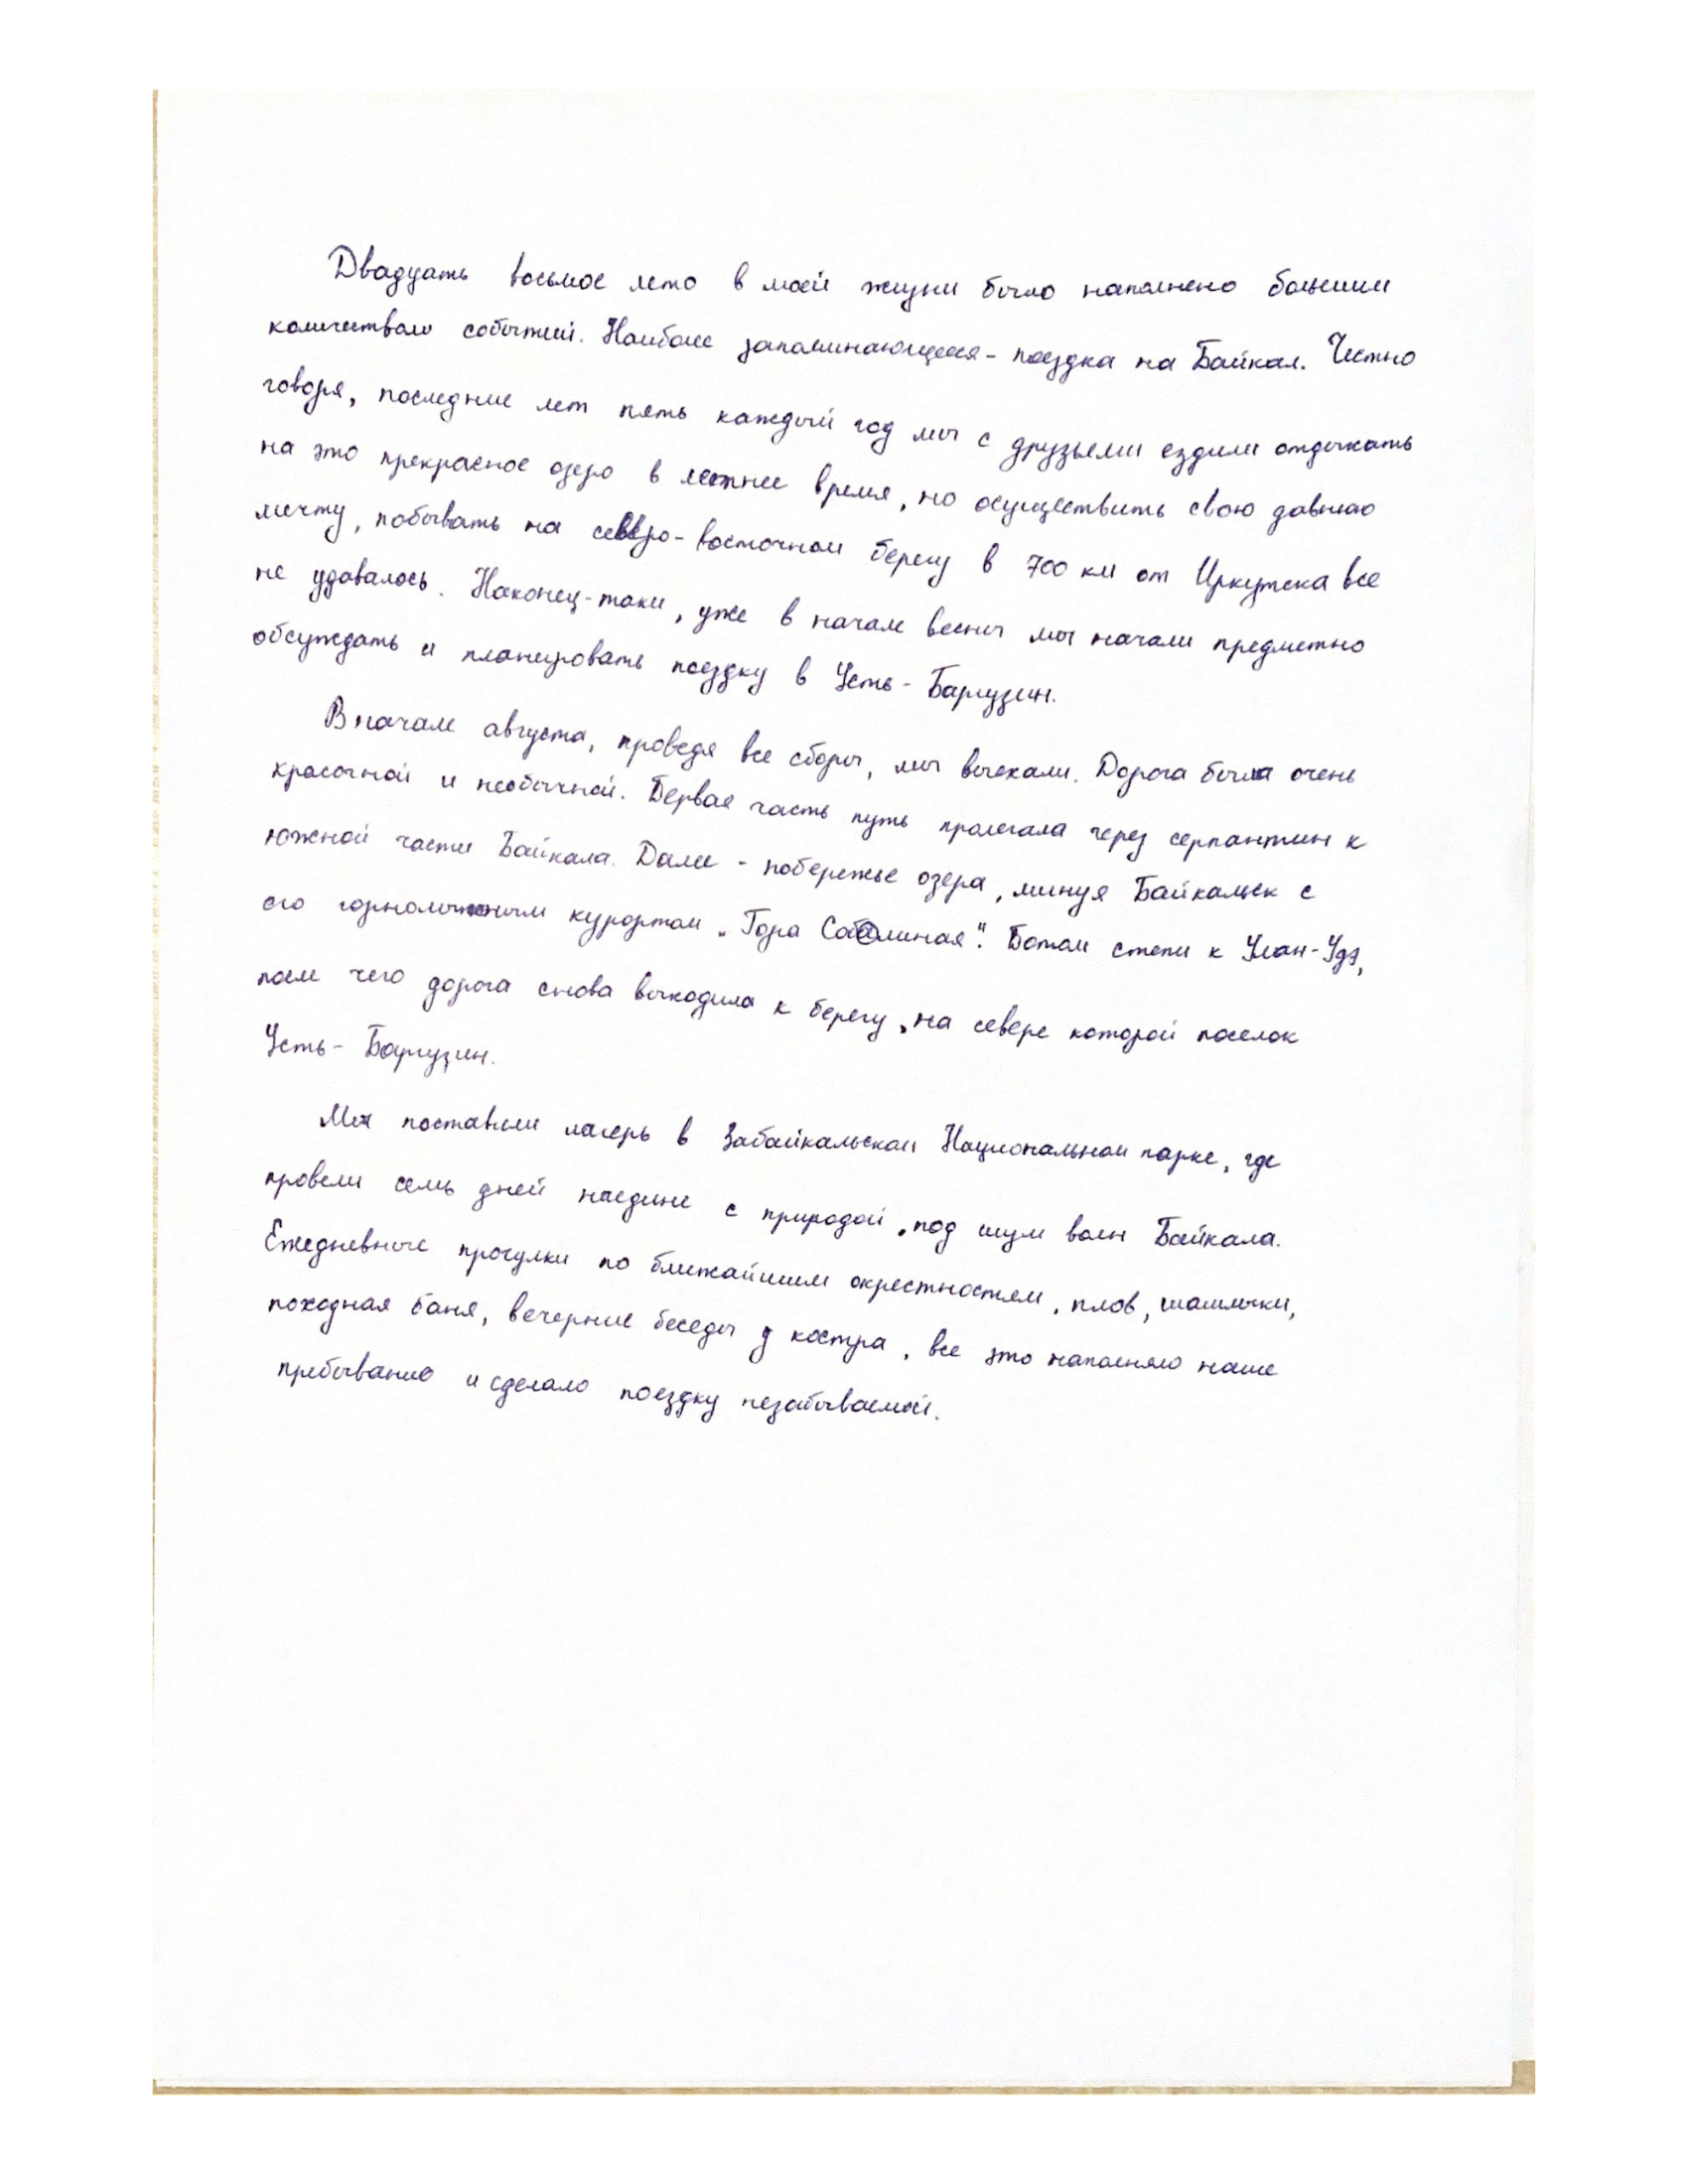 Двадцать восьмое лето в моей жизни было наполнено большим
количеством событий. Наиболее запоминающееся - поездка на Байкал. Честно
говоря, последние лет пять каждый год мы с друзьями ездили отдыхать
на это прекрасное озеро в летнее время, но осуществить свою давнюю
мечту, побывать на северо-восточном берегу в 700 км от Иркутска все
не удавалось. Наконец-таки, уже в начале весны мы начали предметно
обсуждать и планировать поездку в Усть-Баргузин.
В начале августа, проведя все сборы, мы выехали. Дорога была очень
красочной и необычной. Первая часть путь пролегала через серпантин к
южной части Байкала. Далее - побережье озера, минуя Байкальск с
его горнолыжным курортом "Гора Соболиная". Потом степи к Улан-Удэ,
после чего дорога снова выходила к берегу, на севере которой поселок
Усть-Баргузин.
Мы поставили лагерь в Забайкальском Национальном парке, где
провели семь дней наедине с природой, под шум волн Байкала.
Ежедневные прогулки по ближайшим окрестностям, плов, шашлычки,
походная баня, вечерние беседы у костра, все это наполняло наше
пребывание и сделало поездку незабываемой.